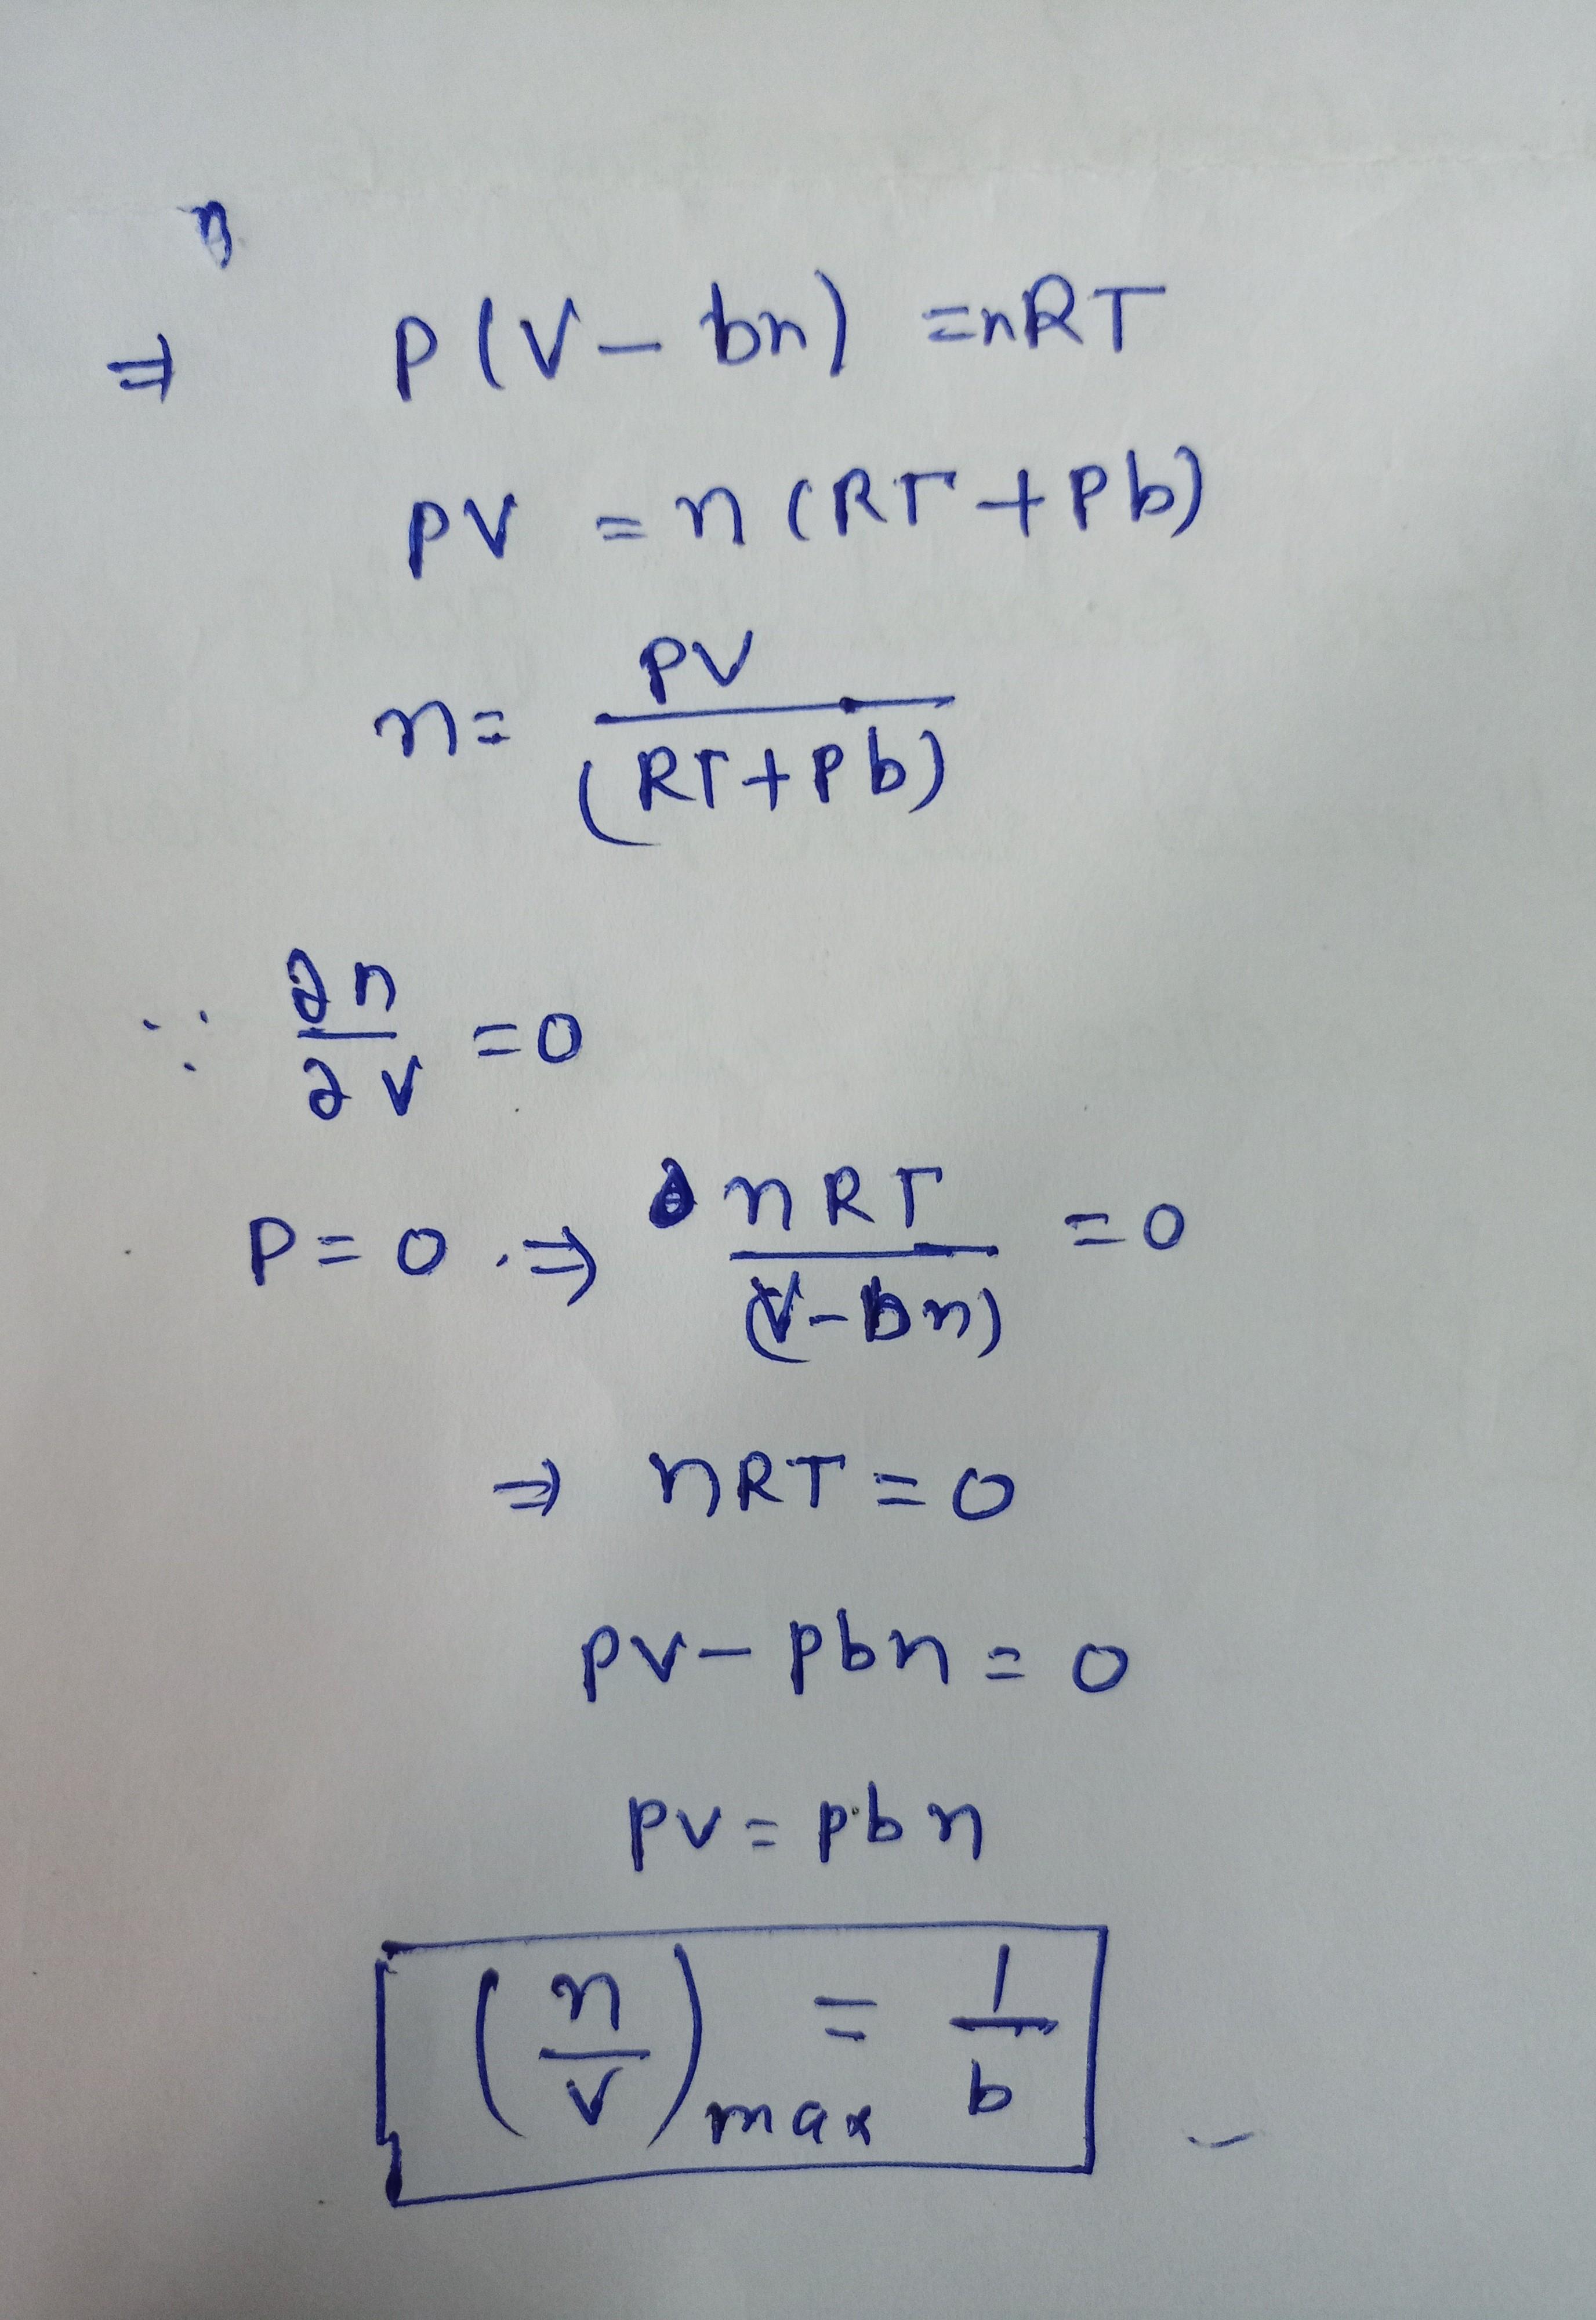 n
⇒ P(V - bn) = nRT
PV = n(RT + Pb)
n = PV / (RT + Pb)
∵ ∂n/∂V = 0
P = 0 ⇒ nRT / (V - bn) = 0
⇒ nRT = 0
PV - Pbn = 0
PV = Pbn
(n/V)max = 1/b